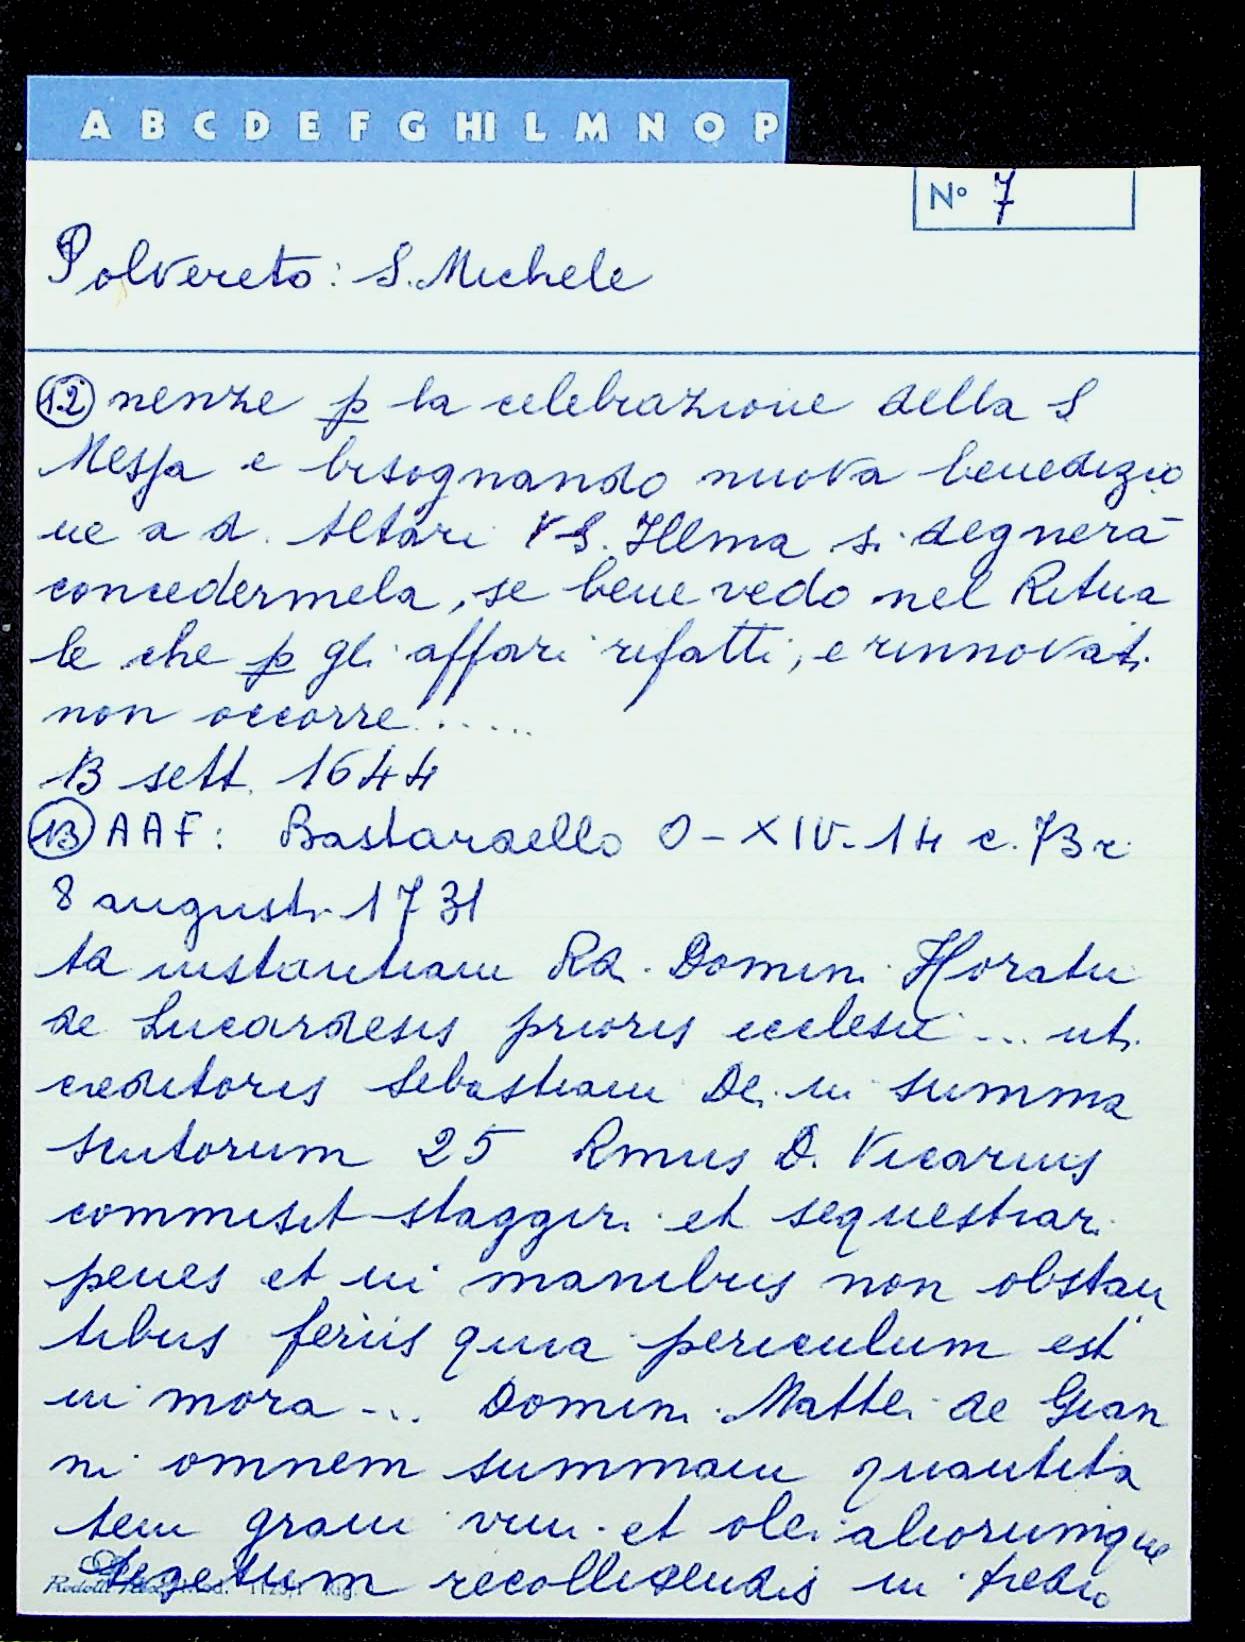 A B C D E F G HI L M N O P
N° 7
Polvereto: S. Michele
(12) nenze p la celebrazione della S
Messa e bisognando nuova benedizio
ne a d. Altari VS. Illma si degnerà
concedermela, se bene vedo nel Ritua
le che p gli affari rifatti, e rinnovati
non occorre.....
13 sett. 1644
(13) AAF: Bastardello O-XIV-14 c. 73r
8 augusti 1731
Ad instantiam Rd. Domini Horatii
de Lucardesis prioris ecclesie ... uti
creditoris Sebastiani Dei in summa
scutorum 25 Rmus D. Vicarius
commisit staggiri et sequestrari
penes et in manibus non obstan
tibus feriis quia periculum est
in mora ... Domini Mattei de Gian
ni omnem summam quantita
tem grani vini et olei aliorumque
segetum recollidendis in predio